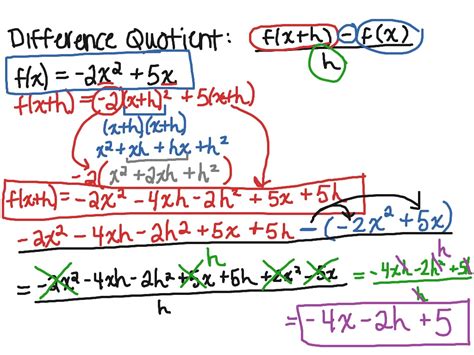 Difference Quotient: f(x+h) - f(x) / h
f(x) = -2x² + 5x
f(x+h) = -2(x+h)² + 5(x+h)
(x+h)(x+h)
x² + xh + hx + h²
-2(x² + 2xh + h²)
f(x+h) = -2x² - 4xh - 2h² + 5x + 5h
-2x² - 4xh - 2h² + 5x + 5h - (-2x² + 5x)
h
= -2x² - 4xh - 2h² + 5x + 5h + 2x² - 5x / h = -4xh - 2h² + 5h / h
= -4x - 2h + 5